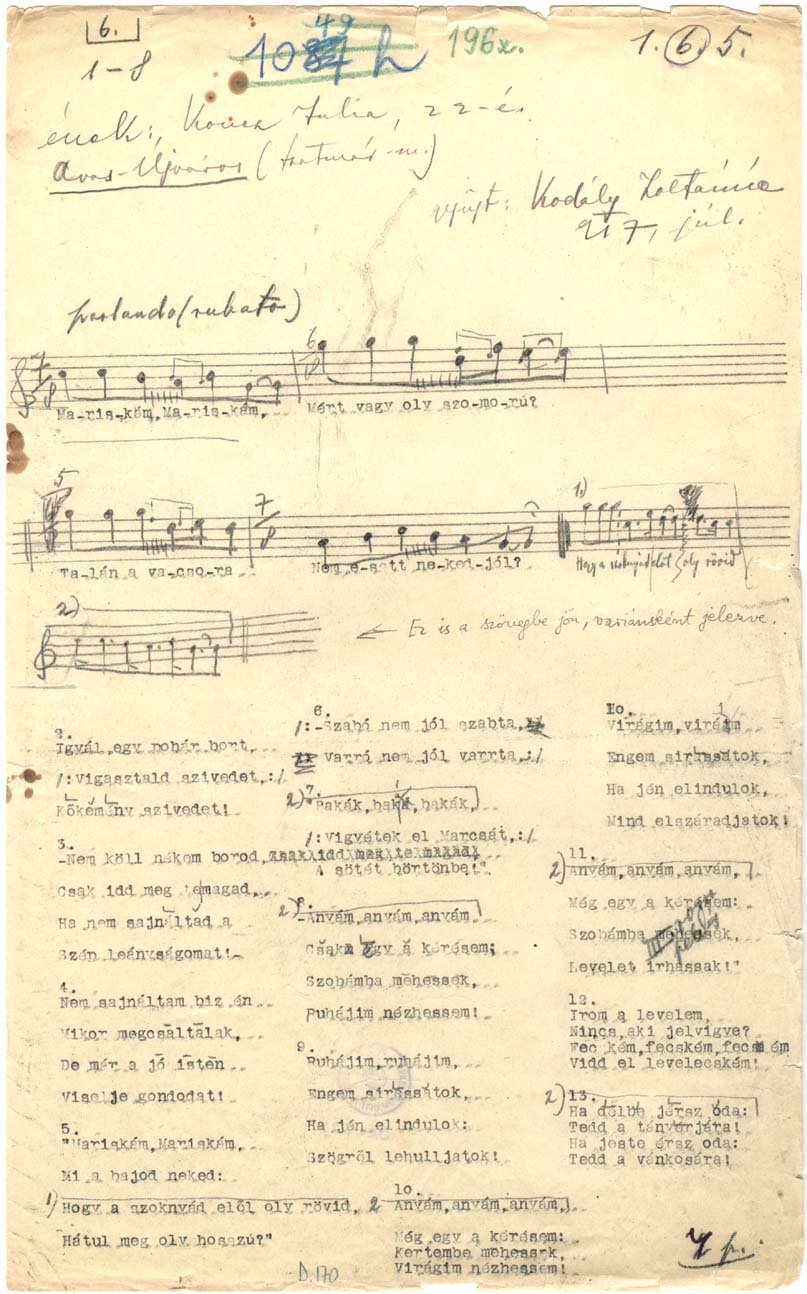 6.
1-8
1084 h
49
196x.
1. 6. 5.
ének: Koncz Julia, 22-és
Avas-Újváros (Szatmár-m.)
gyűjt: Kodály Zoltánné
917, júl.
parlando (rubato)
7 8
6 8
Ma-ris-kám, Ma-ris-kám, Mért vagy oly szo-mo-rú?
5
7 8
1.)
Ta-lán a va-cso-ra Nem e-sett ne-ked jól? Hogy a szoknyád elöl oly rövid
2.)
← Ez is a szövegbe jön, variánsként jelezve.
2.
Igyál egy pohár bort,
/:Vigasztald szivedet,:/
Kőkemény szivedet!
3.
-Nem köll nékem borod,
Csak idd meg temagad,
Ha nem sajnáltad a
Szén leányságomat!-
4.
Nem sajnáltam biz én
Mikor megcsáltalak,
De már a jó isten
Viselje gondodat!
5.
"Mariskám,Mariskám,
Mi a bajod neked:
1) Hogy a szoknyád elől oly rövid,
Hátul meg oly hosszú?"
6.
/:-Szabó nem jól szabta,
varró nem jól varrta,:/
7.
2) "Bakák,bakák,bakák,
/:Vigyétek el Marcsát,:/
A sötét börtönbe!".
8.
2) -Anyám,anyám,anyám
Csak egy a kérésem;
Szobámba mehessek,
Ruhájim nézhessem!
9.
Ruhájim,ruhájim,
Engem sirassatok,
Ha jén elindulok:
Szögről lehulljatok!
10.
2 Anyám,anyám,anyám,
Még egy a kérésem:
Kertembe mehessek,
Virágim nézhessem!
10.
Virágim,virágim
Engem sirassátok,
Ha jén elindulok,
Mind elszáradjatok!
11.
2) Anyám,anyám,anyám,
Még egy a kérésem:
Szobámba mehessek,
Levelet irhassak!"
12.
Irom a levelem,
Nincs,aki jelvigye?
Fecském,fecském,fecském
Vidd el levelecském!
2) 13.
Ha délbe jérsz oda:
Tedd a tányérjára!
Ha jeste érsz oda:
Tedd a vánkosára!
D.170